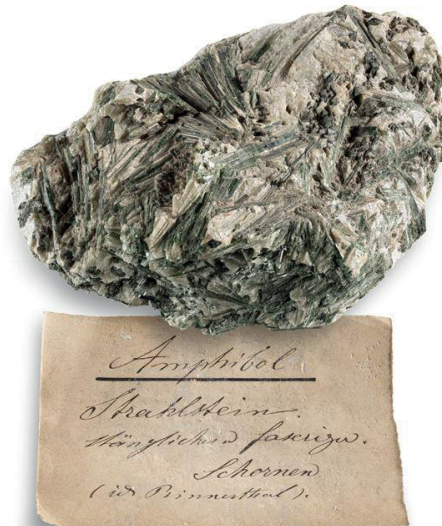 Amphibol
Strahlstein.
stänglicher fasriger.
Schornen
(id Binnenthal).